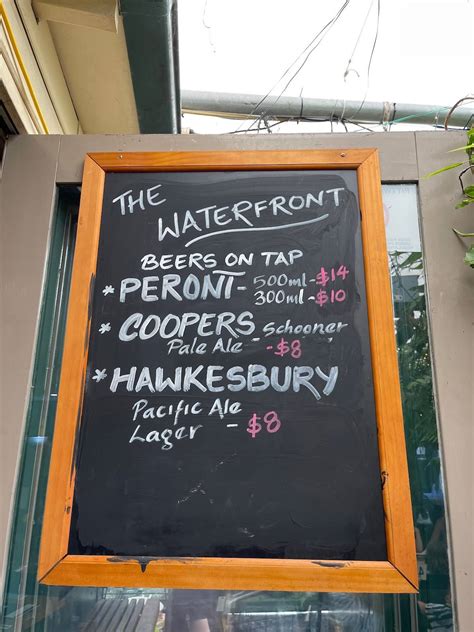 THE
WATERFRONT
BEERS ON TAP
* PERONI - 500ml - $14
300ml - $10
* COOPERS - Schooner
Pale Ale - $8
* HAWKESBURY
Pacific Ale
Lager - $8